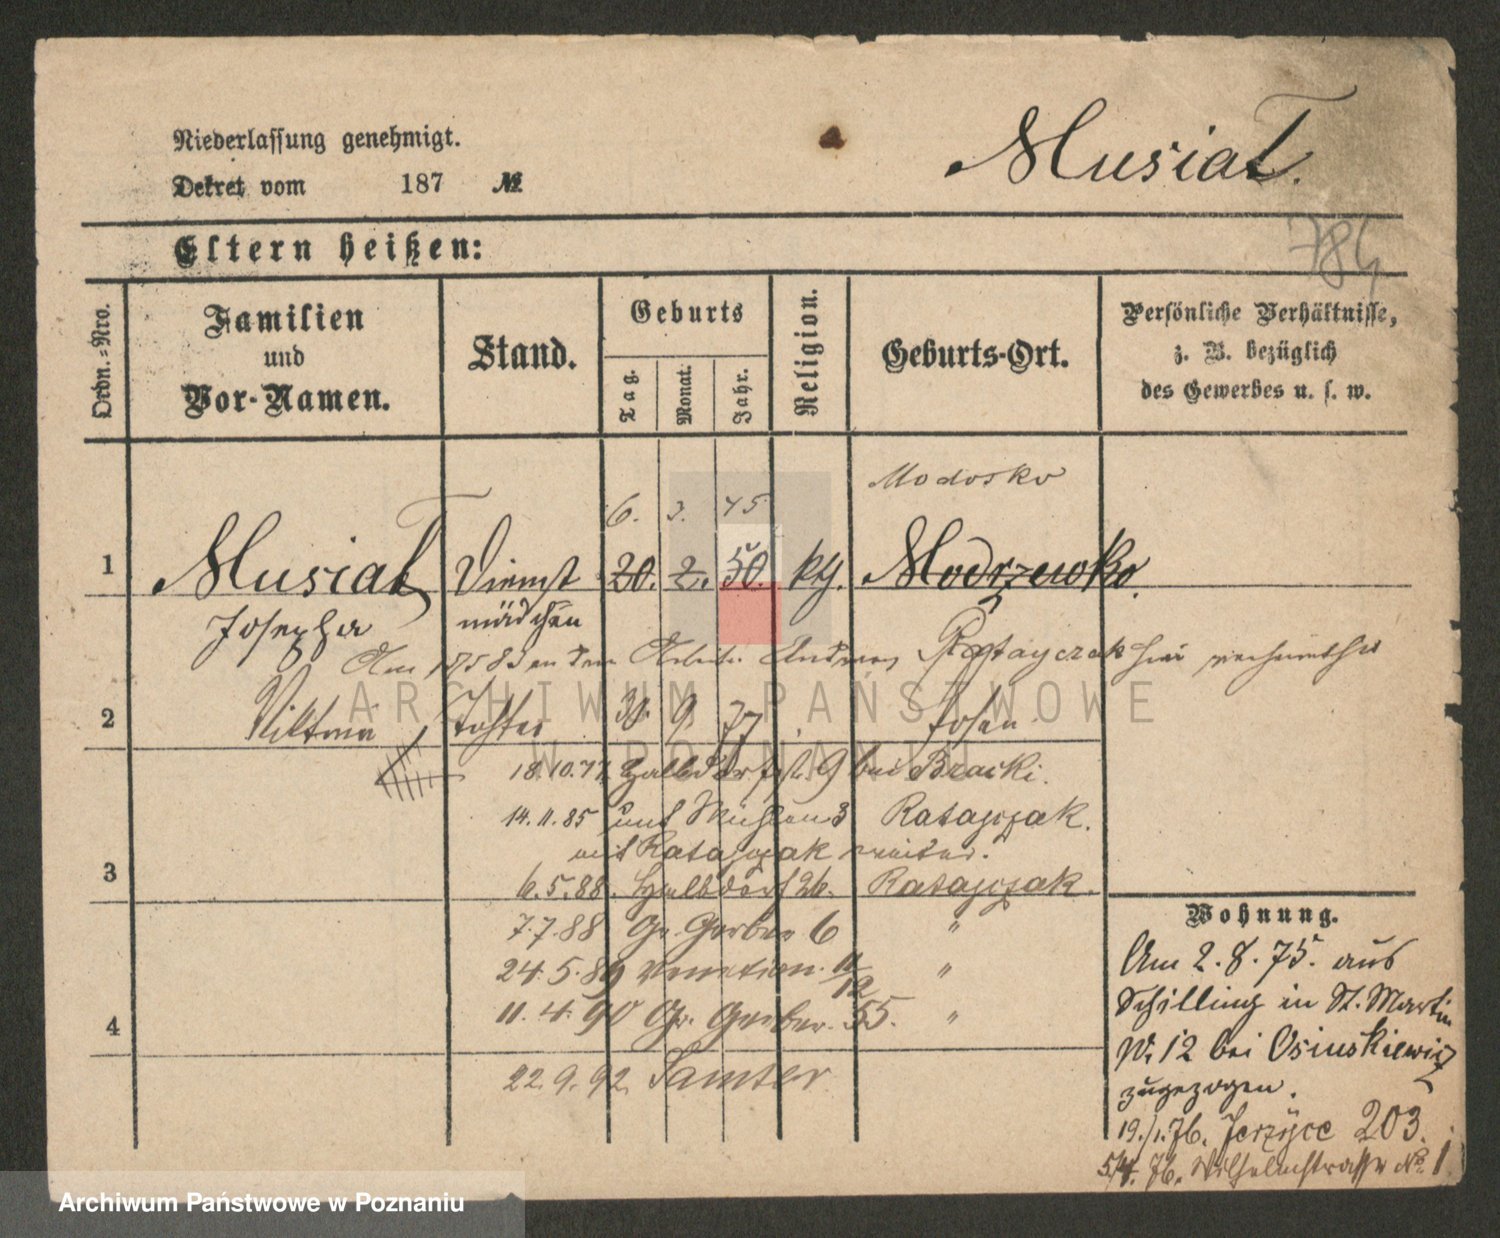 Musiał.
Niederlassung genehmigt.
Dekret vom 187 №
784
Eltern heißen:
Ordn.-Nro.
Familien und Vor-Namen.
Stand.
Geburts
Tag.
Monat.
Jahr.
Religion.
Geburts-Ort.
Persönliche Verhältnisse,
z. B. bezüglich
des Gewerbes u. s. w.
Modosko
6. 3. 45
1 Musiał Dienst 20. 2. 50. kth. Modrzewko.
Josepha mädchen
Am an den Arbeiter Andreas Ratayczak hier verheirathet
2 Viktoria Tochter 30. 9. 77. Posen
18.10.77. Halbdorfstr. 9 bei Bracki.
14.11.85 Mühlen 3 Ratajczak.
mit Ratajczak weiter.
3 6.5.88. Halbdorf 26. Ratajczak.
7.7.88 Gr. Gerber 6 "
24.5.89 Venetian. 11/12 "
4 11.4.90 Gr. Gerber. 55. "
22.9.92 Samter
Wohnung.
Am 2.8.75. aus
Schilling in St. Martin
N. 12 bei Osinskiewicz
zugezogen.
19./1.76. Jerzyce 203.
5/4. 76. Wilhelmstrasse No. 1
ARCHIWUM PAŃSTWOWE
W POZNANIU
Archiwum Państwowe w Poznaniu